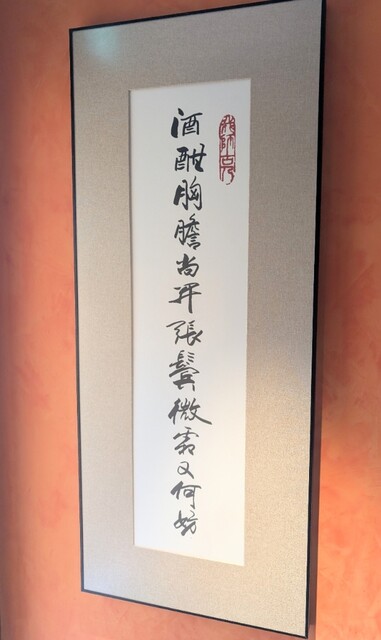 我師古
酒酣胸膽尚开張鬢微霜又何妨